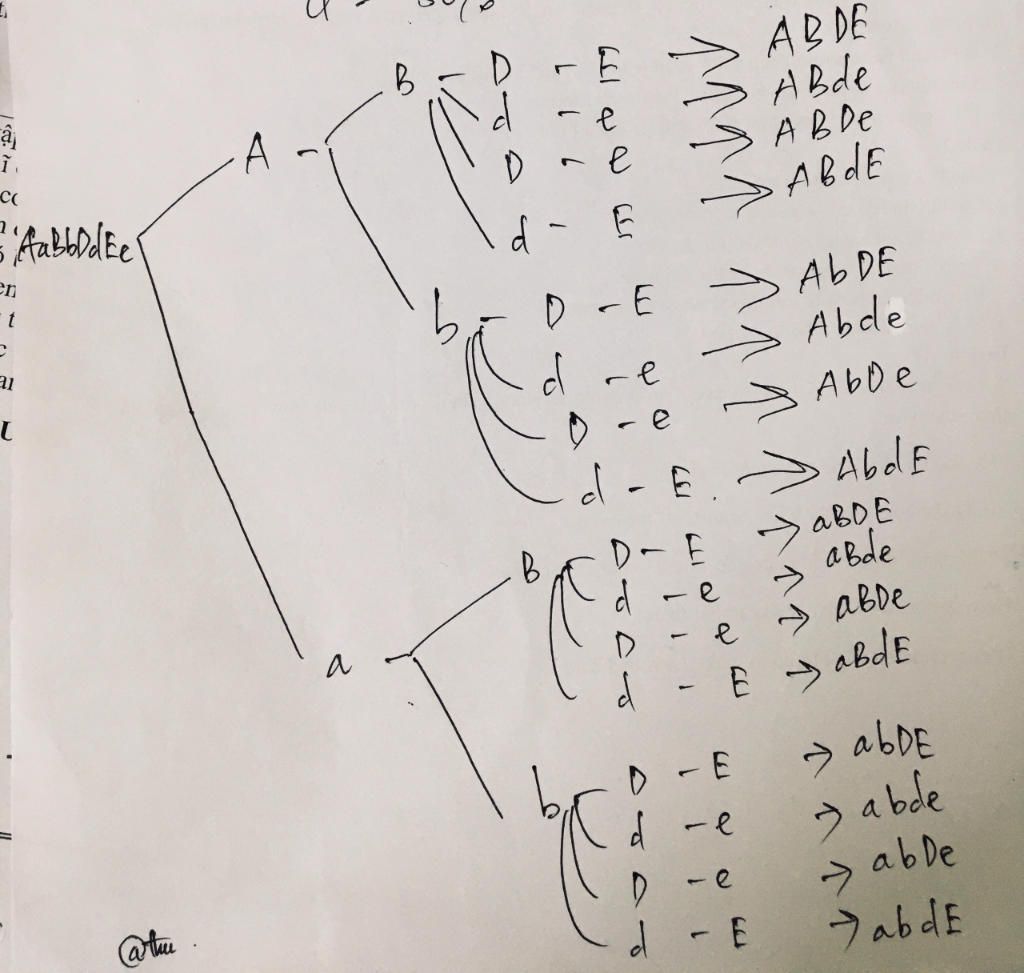 B - D - E → ABDE
d - e → ABde
A - D - e → ABDe
d - E → ABdE
AaBbDdEe
b - D - E → AbDE
d - e → Abde
D - e → AbDe
d - E . → AbdE
B D - E → aBDE
d - e → aBde
D - e → aBDe
a - d - E → aBdE
b D - E → abDE
d - e → abde
D - e → abDe
d - E → abdE
@thu .